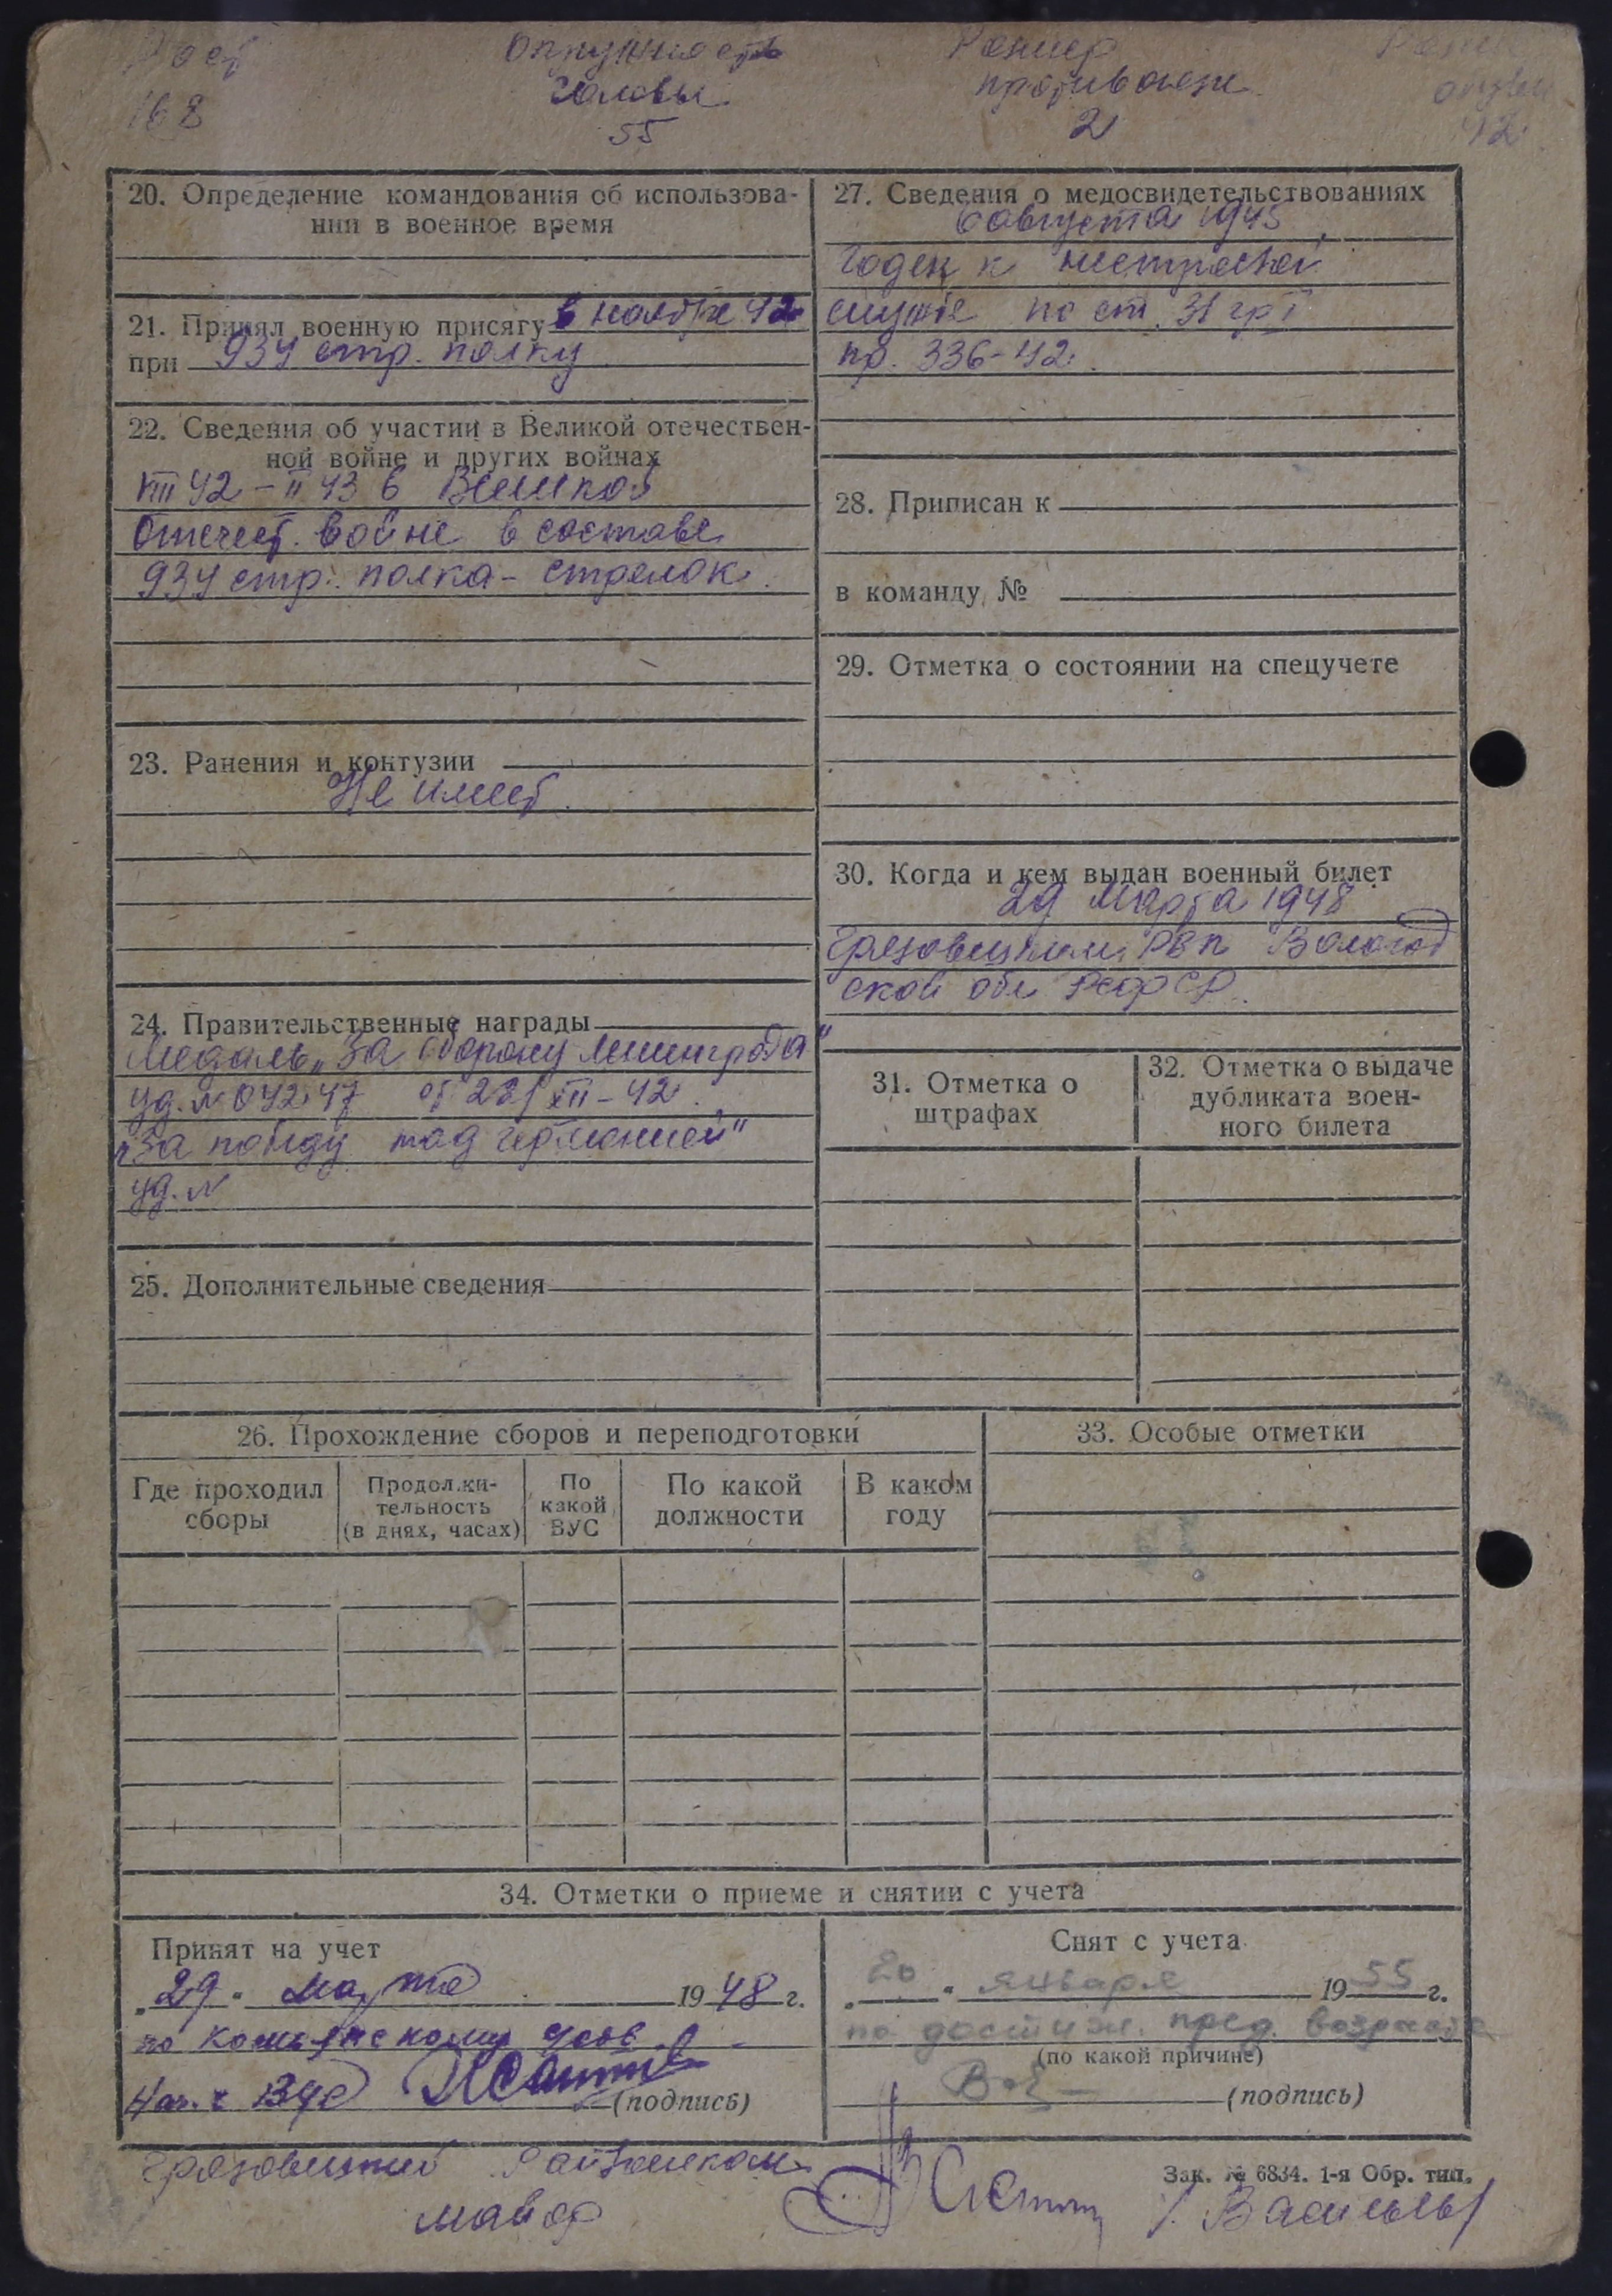 Рост
Окружность
Размер
168
головы
противогаза
55
2
42
20. Определение командования об использова-
нии в военное время
21. Принял военную присягу в ноябре 42
при 934 стр. полку
22. Сведения об участии в Великой отечествен-
ной войне и других войнах
VIII 42 – II 43 в Великой
Отечест. войне в составе
934 стр. полка – стрелок.
23. Ранения и контузии
Не имеет.
24. Правительственные награды
Медаль „За оборону Ленинграда"
уд. № 04247 от XII – 42.
„За победу над Германией"
уд. №
25. Дополнительные сведения
27. Сведения о медосвидетельствованиях
6 августа 1945
Годен к нестроевой
службе по ст. 31 гр I
пр. 336-42.
28. Приписан к
в команду №
29. Отметка о состоянии на спецучете
30. Когда и кем выдан военный билет
29 Марта 1948
Грязовецким РВК Вологод
ской обл РСФСР.
31. Отметка о
штрафах
32. Отметка о выдаче
дубликата воен-
ного билета
26. Прохождение сборов и переподготовки
Где проходил
сборы
Продолжи-
тельность
(в днях, часах)
По
какой
ВУС
По какой
должности
В каком
году
33. Особые отметки
34. Отметки о приеме и снятии с учета
Принят на учет
„29" марта 1948 г.
по
Нач.
(подпись)
Снят с учета
„20" января 1955 г.
по достиж. пред. возраста
(по какой причине)
(подпись)
Грязовецкий Райвоенком
майор
Зак. № 6834. 1-я Обр. тип.
/. Васильев/